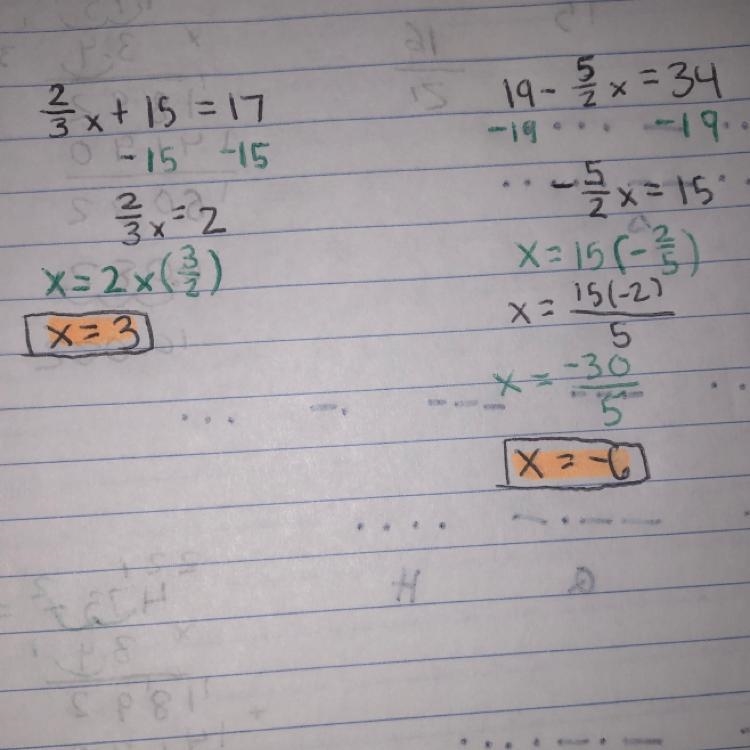 2/3 x + 15 = 17
-15 -15
2/3 x = 2
x = 2 x (3/2)
x = 3
19 - 5/2 x = 34
-19 -19
- 5/2 x = 15
x = 15 (- 2/5)
x = 15(-2)/5
x = -30/5
x = -6